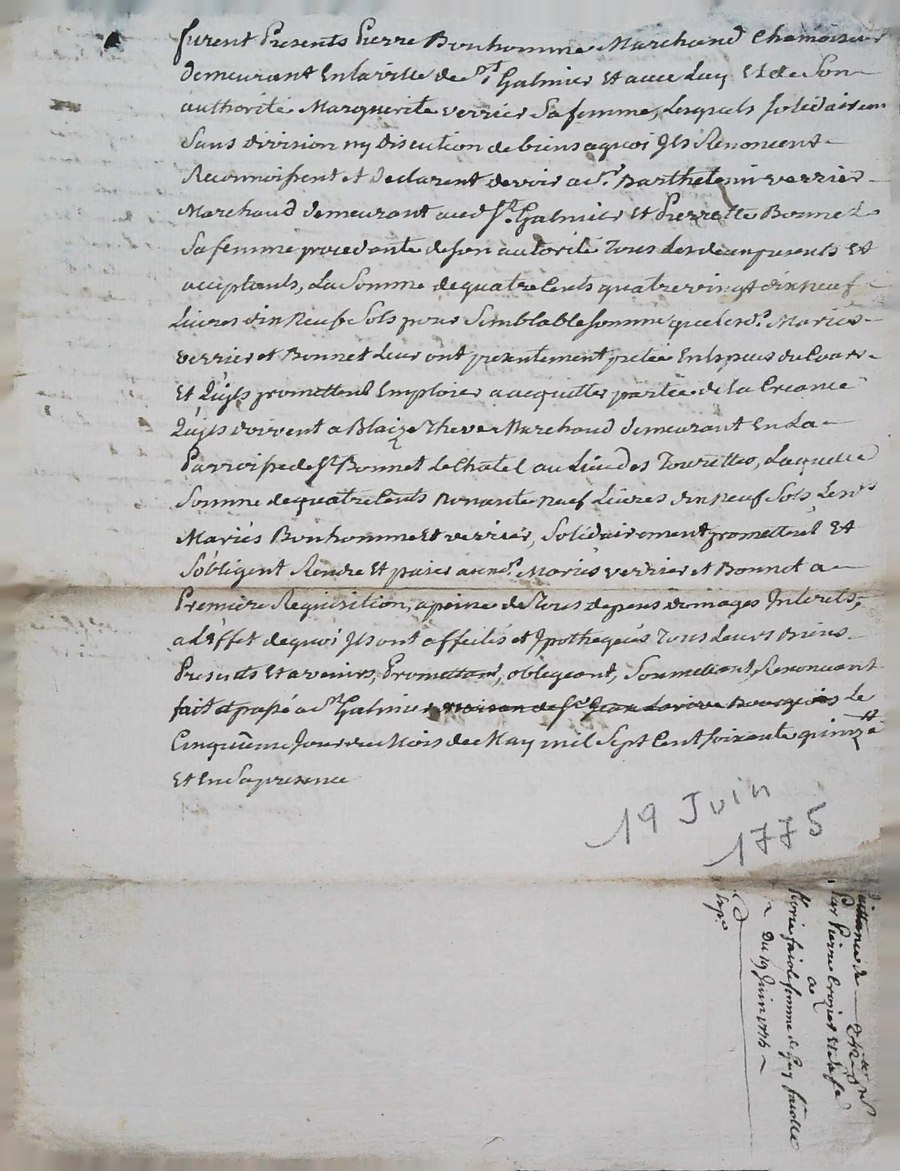 furent Presents Pierre Bonhomme Marchand Chamoiseur
demeurant Enlaville de St Galmier Et avec Luy Et de Son
authorité Marguerite verrier Sa femme, Lesquels solidairem
Sans division ny discution de biens aquoi Ils Renoncent
Reconnoissent et Declarent devoir a Sr Barthelemi verrier
Marchand demeurant aud St Galmier Et Pierrette Bonnet
Sa femme procedante de son autorité Tous Les deux presents Et
acceptants, La Somme de quatre Cents quatrevingt dixneuf
Livres dix Neuf Sols pour Semblable somme que les ds Mariés
verrier et Bonnet Leur ont presentement pretée En Especes du Cours
Et Qu'ils promettent Emploier a acquitter partie de la Creance
Qu'ils doivent a Blaize Theve Marchand demeurant En La
Parroisse de St Bonnet Le Chatel au Lieu des Tourettes, Laquelle
Somme de quatre Cents Nonante Neuf Livres dix Neuf Sols Les ds
Mariés Bonhomme Et verrier, Solidairement promettent Et
S'obligent Rendre Et paier aux ds Mariés verrier et Bonnet a
Premiere Requisition, a peine de Tous depens domages Interets,
a L'Effet de quoi Ils ont affectés et Ipothequés Tous Leurs Biens
Presents Et avenirs, Promettant, obligeant, Soumettant, Renonceant
fait et passé a St Galmier maison de Sr Jean Bourgeois Le
Cinquième Jour du Mois de May mil Sept Cent soixante quinze
Et En Sa presence
19 Juin
1775
Quittance de
Par Pierre Crozet Et Sa fe
a
femme de Guy faiolle
Du 19 Juin 1775
Exp.